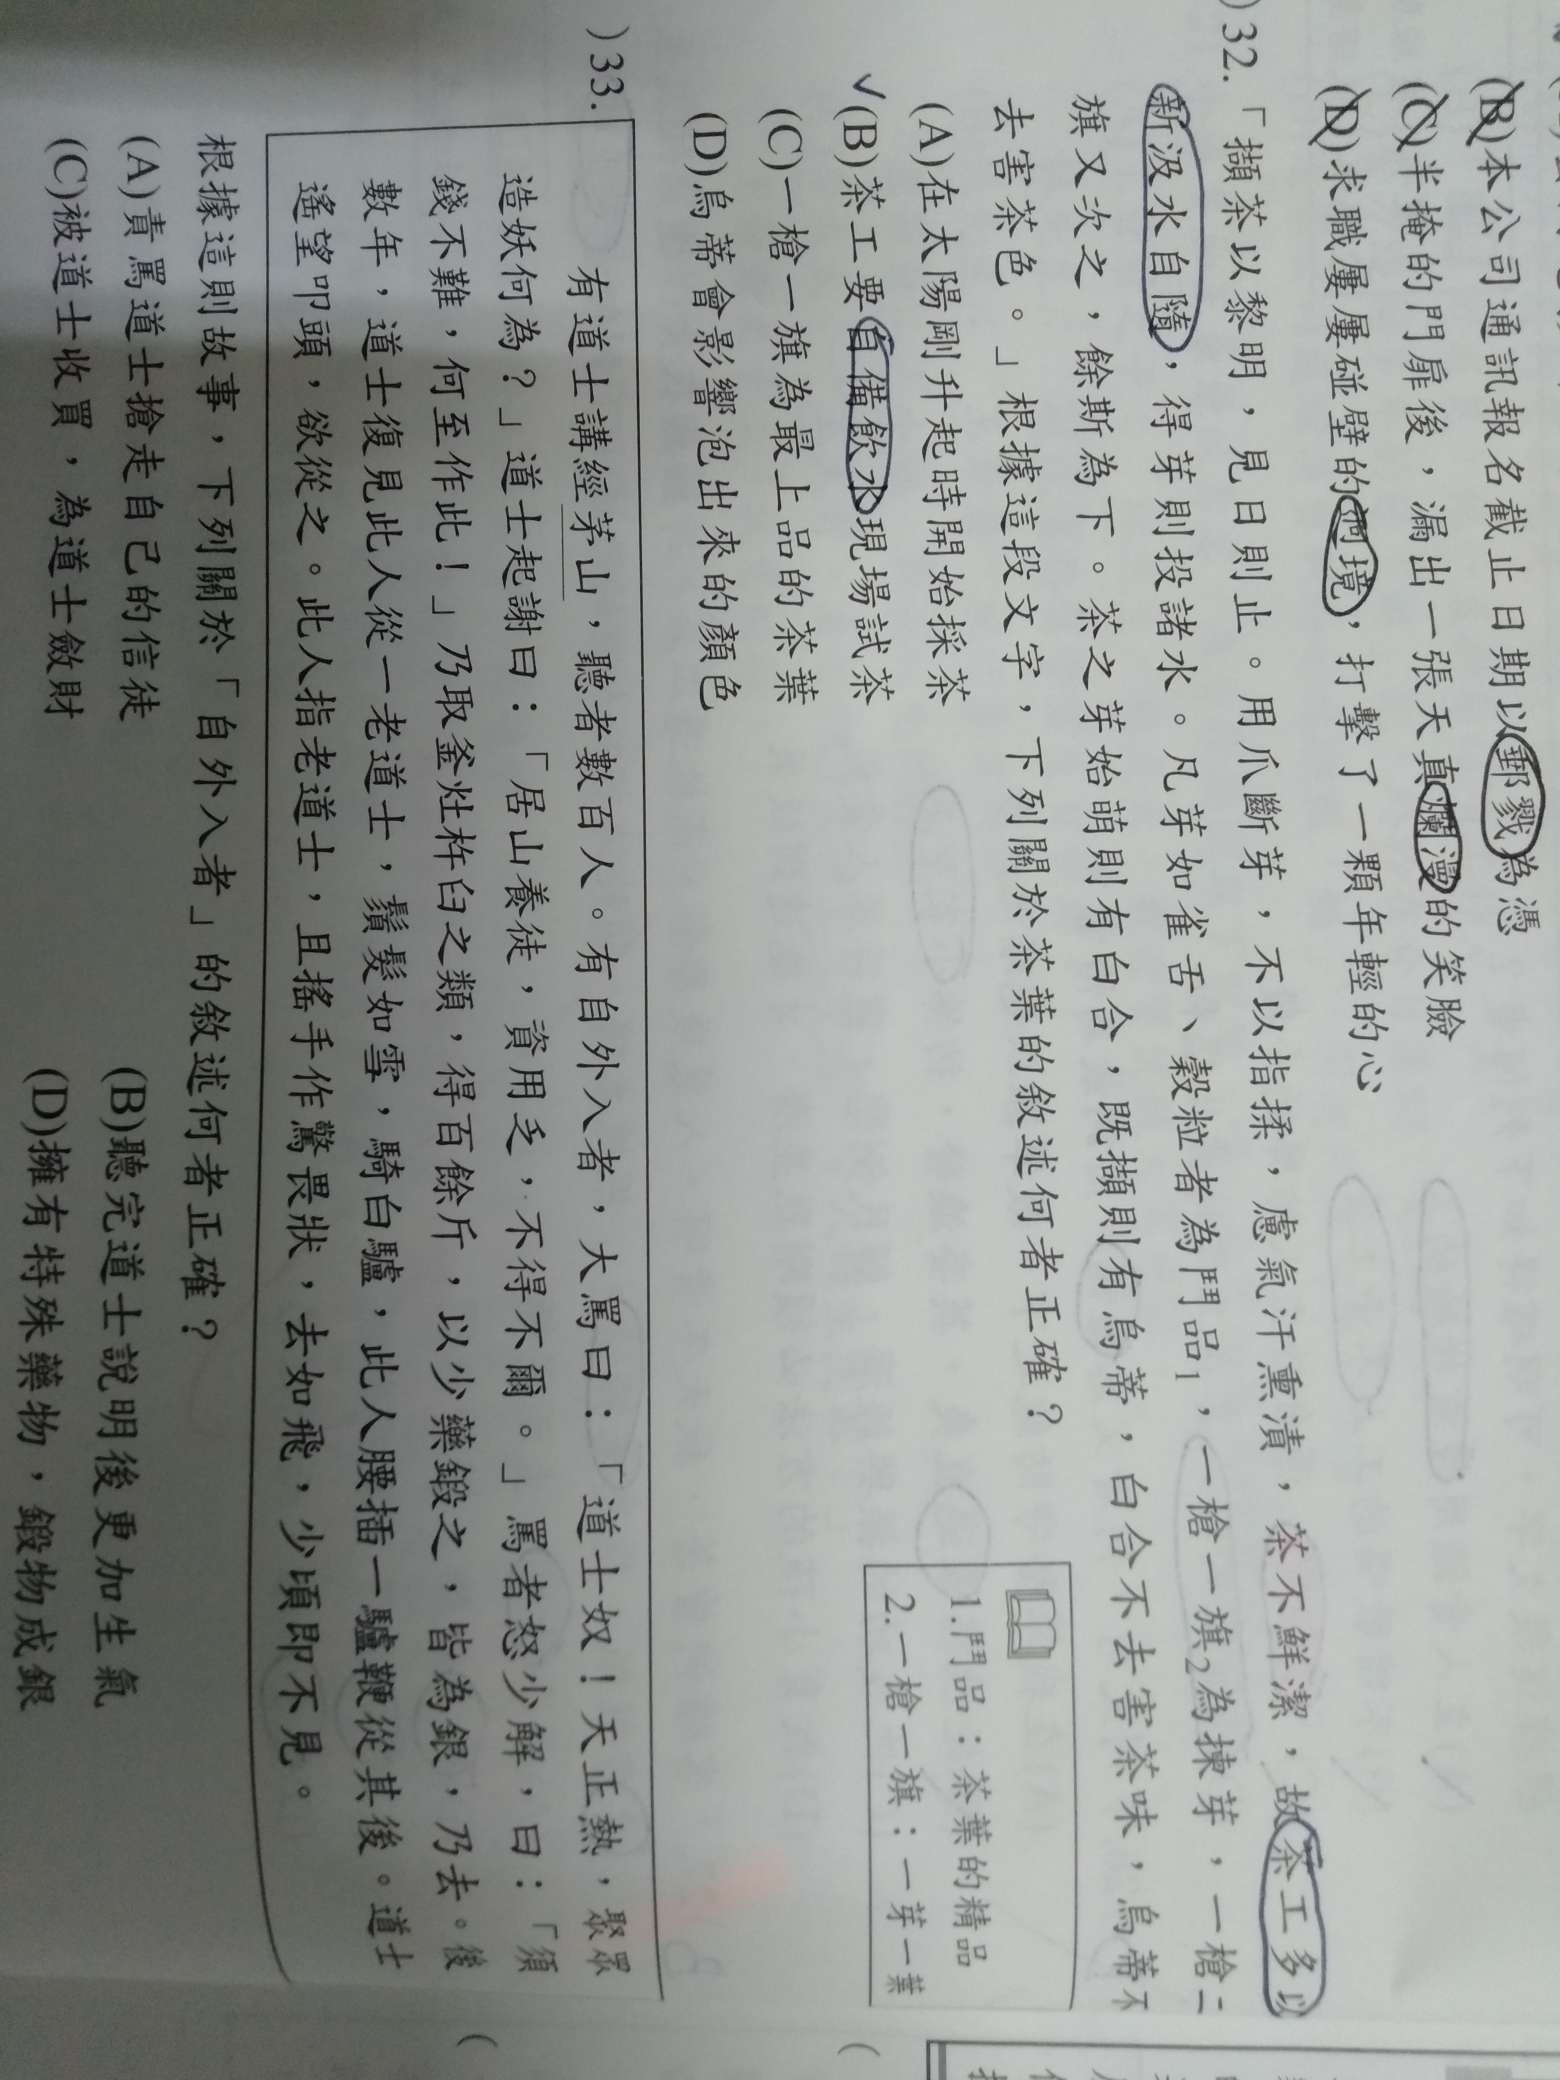 (B)本公司通訊報名截止日期以郵戮為憑
(C)半掩的門扉後，漏出一張天真爛漫的笑臉
(D)求職屢屢碰壁的遭境，打擊了一顆年輕的心
)32.「擷茶以黎明，見日則止。用爪斷芽，不以指揉，慮氣汗熏漬，茶不鮮潔，故茶工多以
新汲水自隨，得芽則投諸水。凡芽如雀舌、穀粒者為鬥品1，一槍一旗2為揀芽，一槍二
旗又次之，餘斯為下。茶之芽始萌則有白合，既擷則有烏蒂，白合不去害茶味，烏蒂不
去害茶色。」根據這段文字，下列關於茶葉的敘述何者正確？
(A)在太陽剛升起時開始採茶
(B)茶工要自備飲水現場試茶
(C)一槍一旗為最上品的茶葉
(D)烏蒂會影響泡出來的顏色
1.鬥品：茶葉的精品
2.一槍一旗：一芽一葉
)33.
有道士講經茅山，聽者數百人。有自外入者，大罵曰：「道士奴！天正熱，聚眾
造妖何為？」道士起謝曰：「居山養徒，資用乏，不得不爾。」罵者怒少解，曰：「須
錢不難，何至作此！」乃取釜灶杵臼之類，得百餘斤，以少藥鍛之，皆為銀，乃去。後
數年，道士復見此人從一老道士，鬚髮如雪，騎白驢，此人腰插一驢鞭從其後。道士
遙望叩頭，欲從之。此人指老道士，且搖手作驚畏狀，去如飛，少頃即不見。
根據這則故事，下列關於「自外入者」的敘述何者正確？
(A)責罵道士搶走自己的信徒
(B)聽完道士說明後更加生氣
(C)被道士收買，為道士斂財
(D)擁有特殊藥物，鍛物成銀